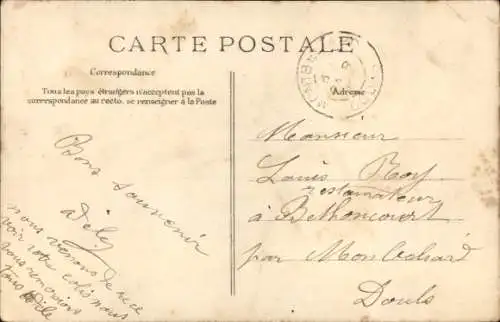 CARTE POSTALE
Correspondance
Tous les pays étrangers n'acceptent pas la
correspondance au recto, se renseigner à la Poste
Adresse
Bons souvenir
nous venons de rece
voir votre colis nous
vous remercions
tous
Monsieur
Louis Roy
restaurateur
à Bethoncourt
par Montbéliard
Doubs